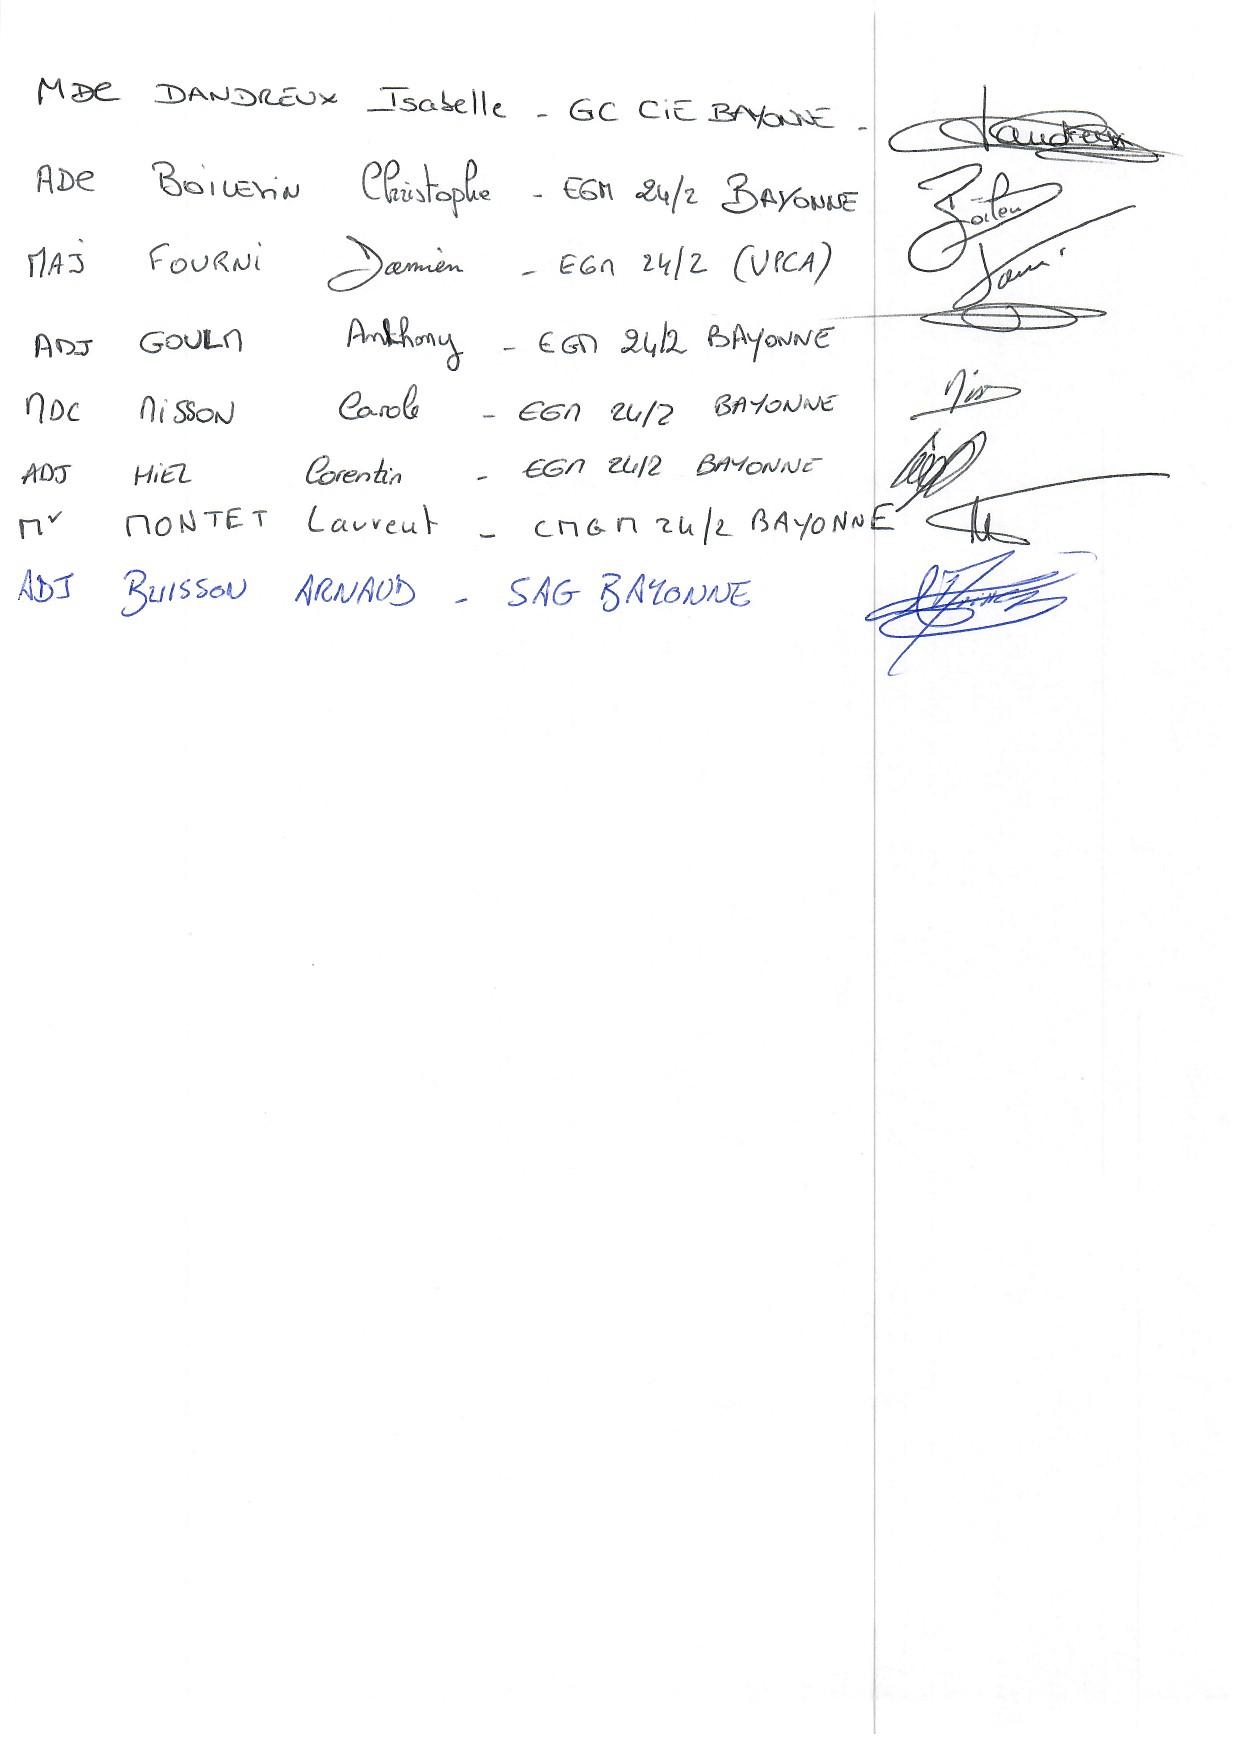 MDC DANDREUX Isabelle - GC CIE BAYONNE -
ADC Christophe - EGM 24/2 BAYONNE
MAJ FOURNI Damien - EGM 24/2 (VPCA)
ADJ Anthony - EGM 24/2 BAYONNE
MDC NISSON Carole - EGM 24/2 BAYONNE
ADJ HIEZ Corentin - EGM 24/2 BAYONNE
Mr MONTET Laurent - CMGM 24/2 BAYONNE
ADJ BUISSON ARNAUD - SAG BAYONNE